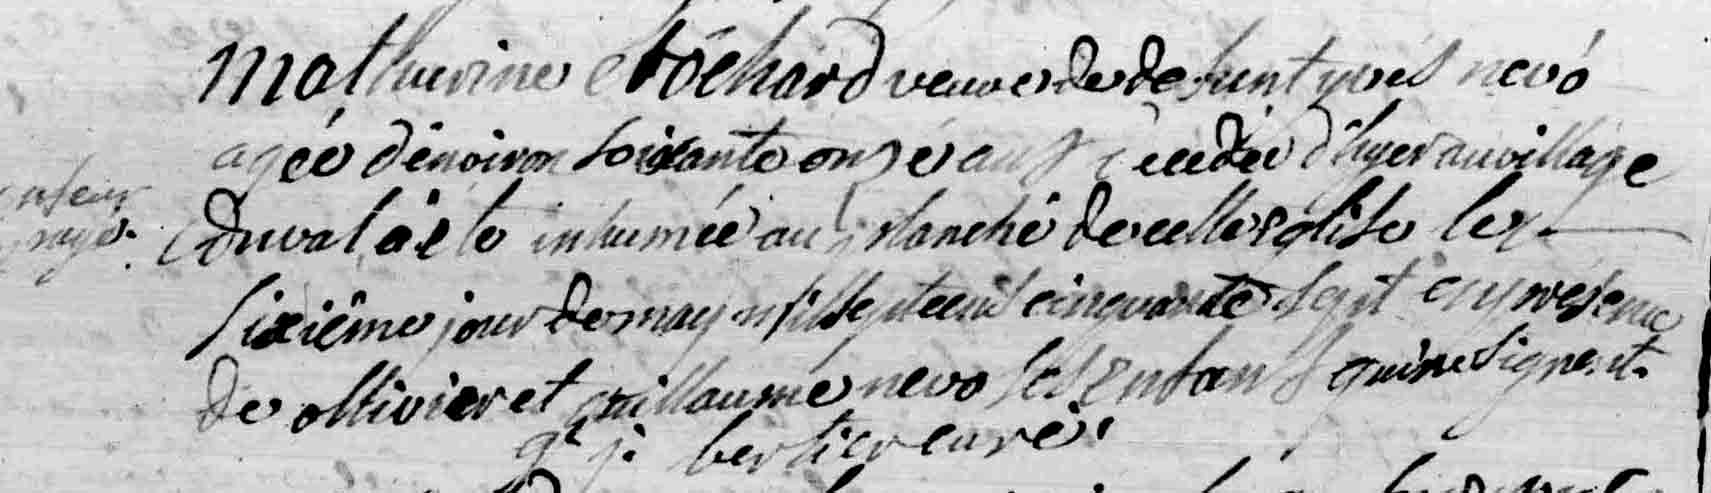 Mathurine Bôéhard veuve de defunt yves nevó
agée d'environ soixante onze ans décédée d'hyer au village
du val a été inhumée au planché de cette eglise le
sixiême jour de may mil sept cens cinquante sept en presence
de ollivier et guillaume nevo ses enfans qui ne signent.
g. j. bertier curé